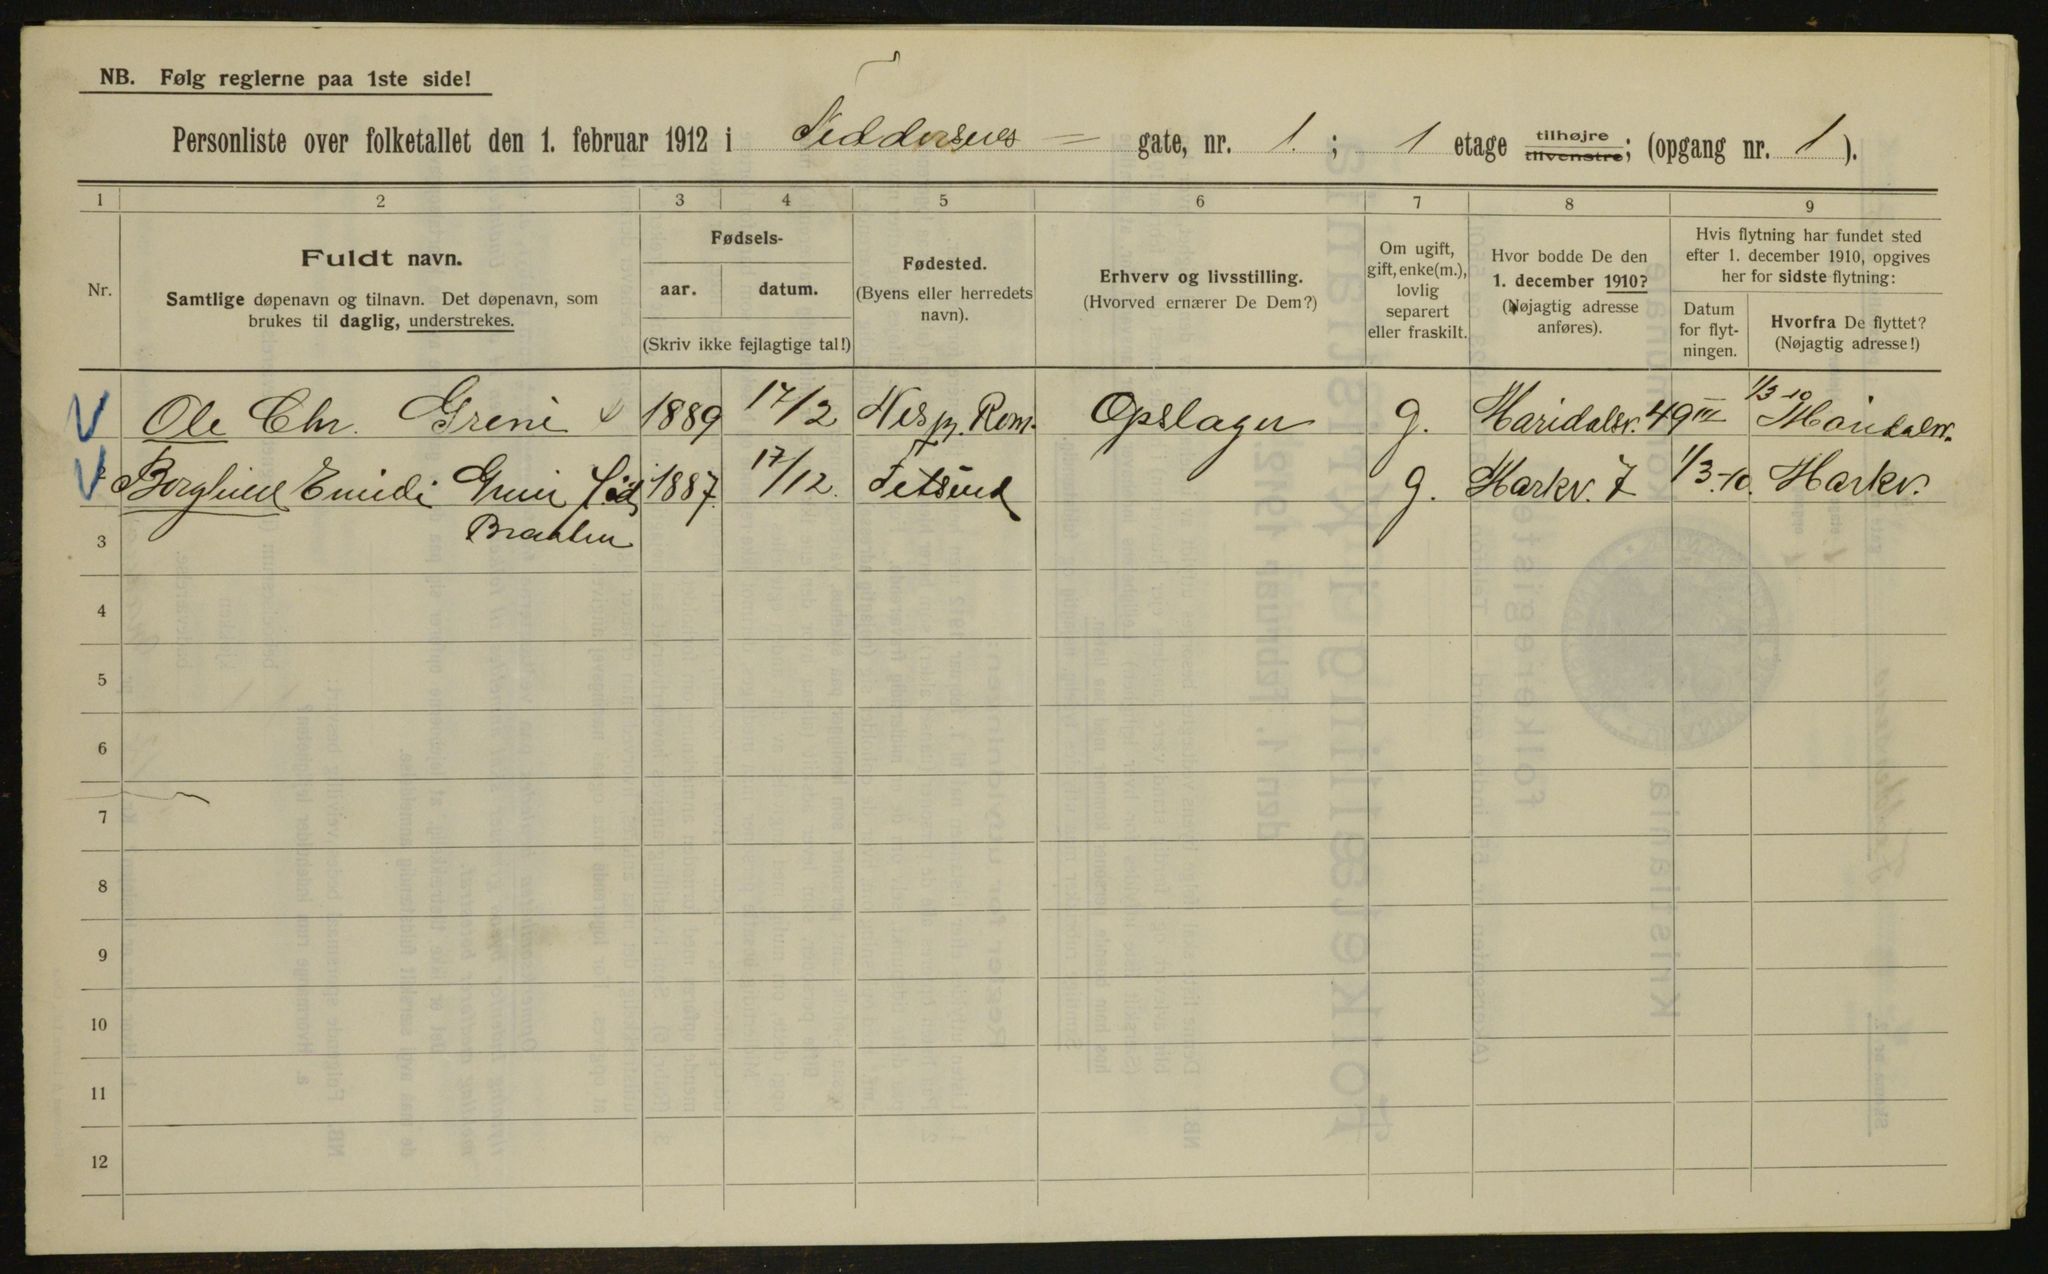 NB. Følg reglerne paa 1ste side!
Personliste over folketallet den 1. februar 1912 i Feddersens gate, nr. 1. ; 1 etage tilhøjre tilvenstre; (opgang nr. 1 ).
1 2 3 4 5 6 7 8 9
Nr.
Fuldt navn.
Samtlige døpenavn og tilnavn. Det døpenavn, som
brukes til daglig, understrekes.
Fødsels-
aar. datum.
(Skriv ikke fejlagtige tal!)
Fødested.
(Byens eller herredets
navn).
Erhverv og livsstilling.
(Hvorved ernærer De Dem?)
Om ugift,
gift, enke(m.),
lovlig
separert
eller fraskilt.
Hvor bodde De den
1. december 1910?
(Nøjagtig adresse
anføres).
Hvis flytning har fundet sted
efter 1. december 1910, opgives
her for sidste flytning:
Datum
for flyt-
ningen.
Hvorfra De flyttet?
(Nøjagtig adresse!)
Ole Chr. Greni 1889 17/2 Nesp. Rom. Opslager g. Maridalsv. 49 III 1/3-10 Maridalsv.
Borghild Emidi Greni fød 1887. 17/12. Fetsund g. Markv. 7 1/3-10. Markv.
3 Braaten
4
5
6
7
8
9
10
11
12